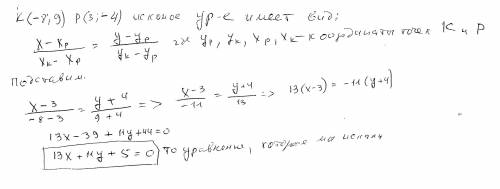 K(-8;9) P(3;-4) искомое ур-е имеет вид:
(x-xp)/(xк-xp) = (y-yp)/(yк-yp) где yp, yк, xp, xк-координаты точек K и P
Подставим.
(x-3)/(-8-3) = (y+4)/(9+4) => (x-3)/(-11) = (y+4)/13 => 13(x-3)=-11(y+4)
13x-39+11y+44=0
13x+11y+5=0 то уравнение, которое мы искали